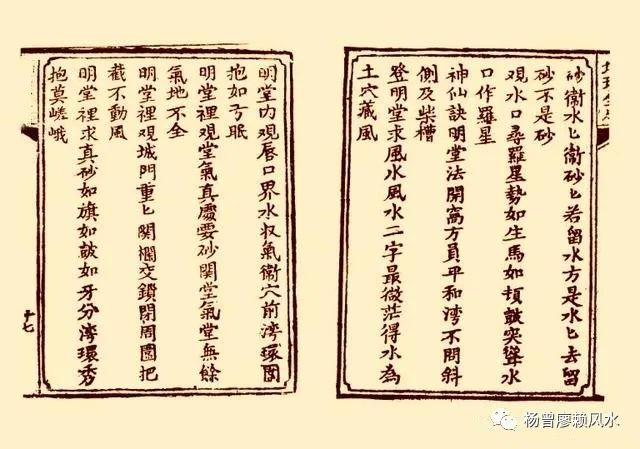 砂衛水匕衛砂匕若留水方是水匕去留
砂不是砂
观水口尋羅星勢如生馬如頓皷突聳水
口作羅星
神仙訣明堂法開窩方員平和湾不問斜
側及柴槽
登明堂求風水風水二字最微茫得水為
土穴藏風
明堂内观唇口界水収氣衛穴前湾環囬
抱如弓眠
明堂裡观堂氣真處要砂関堂氣堂無餘
氣地不全
明堂裡观城門重匕関欄交鎖閉周圍把
截不動風
明堂裡求真砂如旗如皷如牙分湾環秀
抱莫嵯峨
十七
杨曾廖赖风水